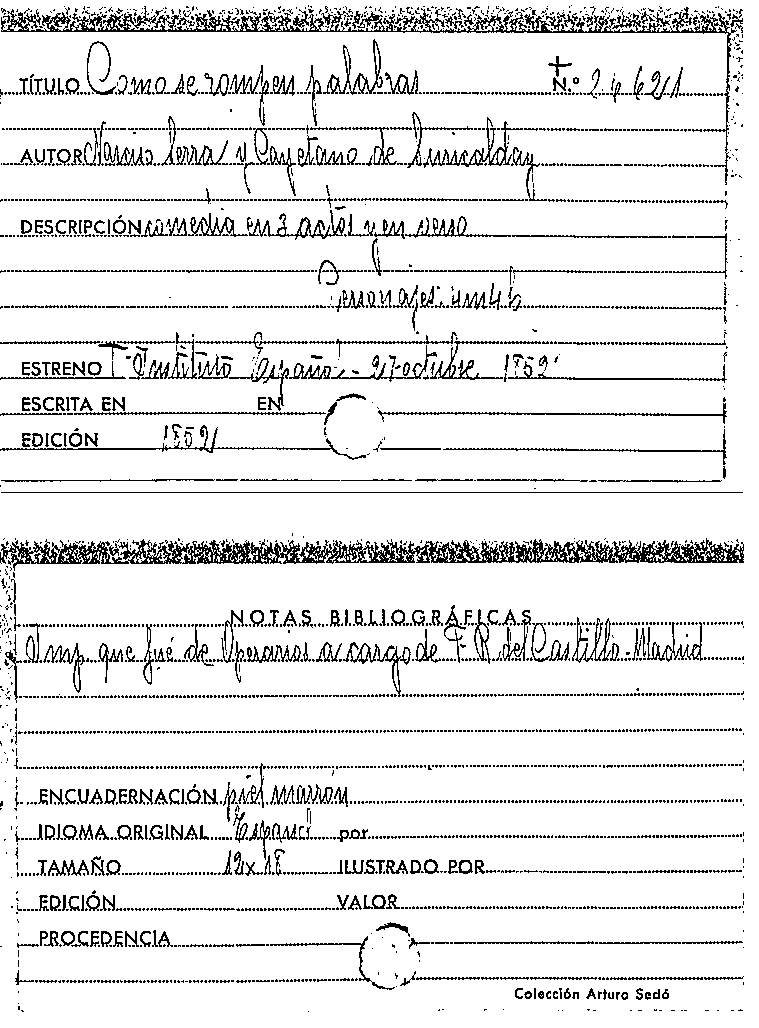 TÍTULO Como se rompen palabras N.º 24621
AUTOR Narciso Serra y Cayetano de Suricalday
DESCRIPCIÓN comedia en 3 actos y en verso
Personajes: 4m4h
ESTRENO T- Instituto Español - 27-octubre 1852
ESCRITA EN EN
EDICIÓN 1852
NOTAS BIBLIOGRÁFICAS
Imp que fué de Operarios a cargo de F. R. del Castillo - Madrid
ENCUADERNACIÓN piel marrón
IDIOMA ORIGINAL Español por
TAMAÑO 12x18 ILUSTRADO POR
EDICIÓN VALOR
PROCEDENCIA
Colección Arturo Sedó